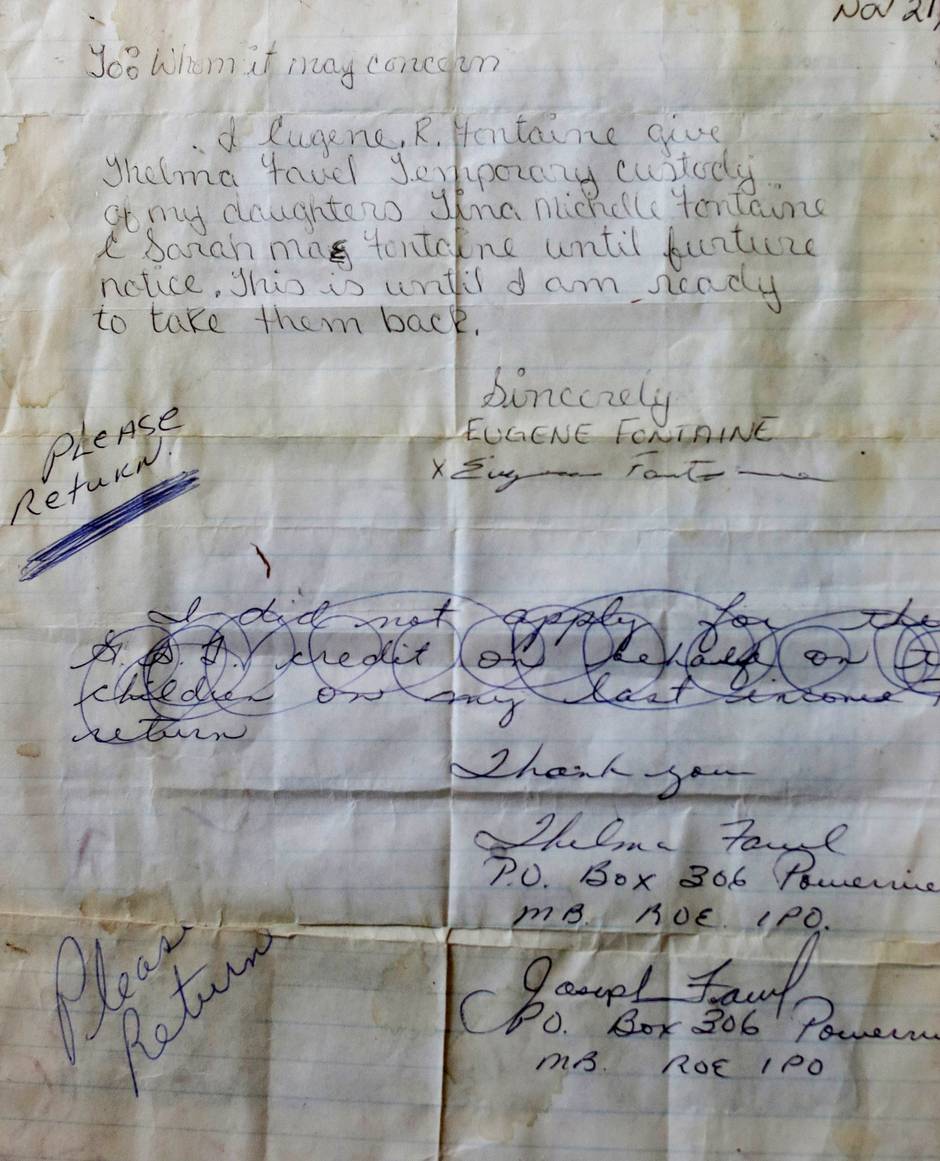 Nov 21,
To: Whom it may concern
I Eugene. R. Fontaine give
Thelma Favel Temporary custody
of my daughters Tina Michelle Fontaine
& Sarah mae Fontaine until furture
notice. This is until I am ready
to take them back.
Sincerely
EUGENE FONTAINE
x Eugene Fontaine
PLEASE
Return.
I did not apply for the
G. S. T. credit on behalf on
children on my last income
return
Thank you
Thelma Favel
P.O. Box 306 Powervie
MB. ROE 1PO.
Please
Return
Joseph Favel
PO. Box 306 Powervie
MB. ROE 1PO